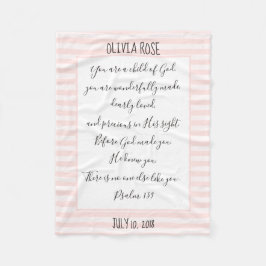 OLIVIA ROSE
You are a child of God
you are wonderfully made,
dearly loved,
and precious in His sight.
Before God made you
He knew you
There is no one else like you
Psalm 139
JULY 10, 2018